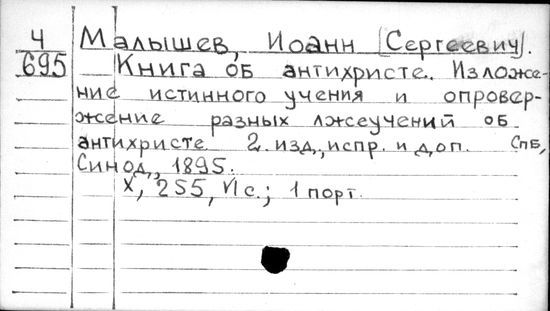 4
695
Малышев, Иоанн [Сергеевич].
Книга об антихристе. Изложе-
ние истинного учения и опровер-
жение разных лжеучений об
антихристе 2. изд., испр. и доп. Спб,
Синод., 1895.
X, 255, VI с.; 1 порт.